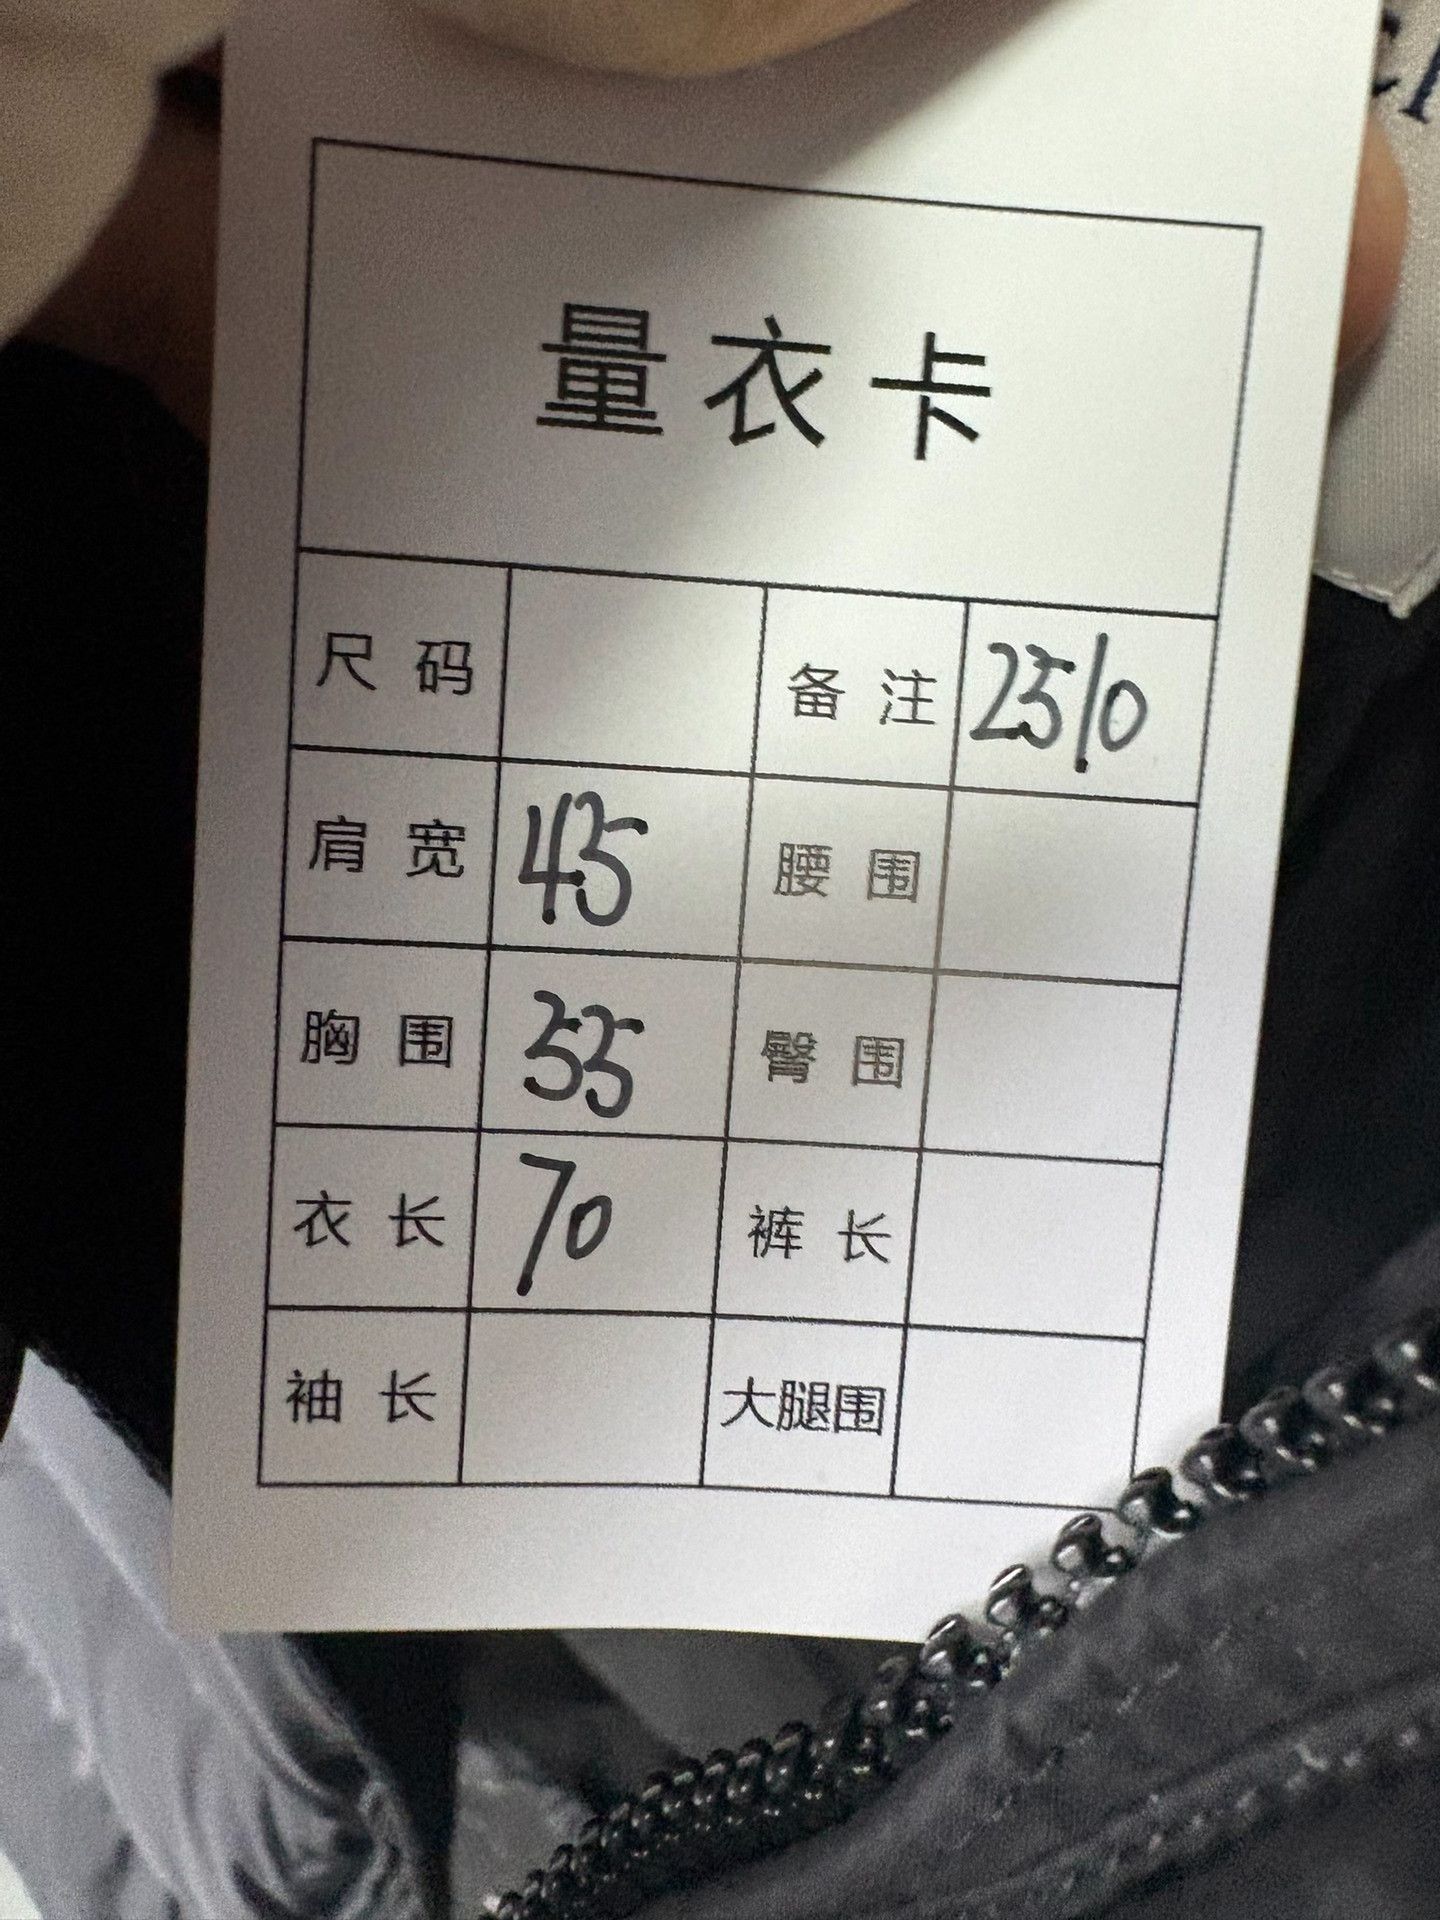 量衣卡
尺码 备注 2510
肩宽 45 腰围
胸围 55 臀围
衣长 70 裤长
袖长 大腿围